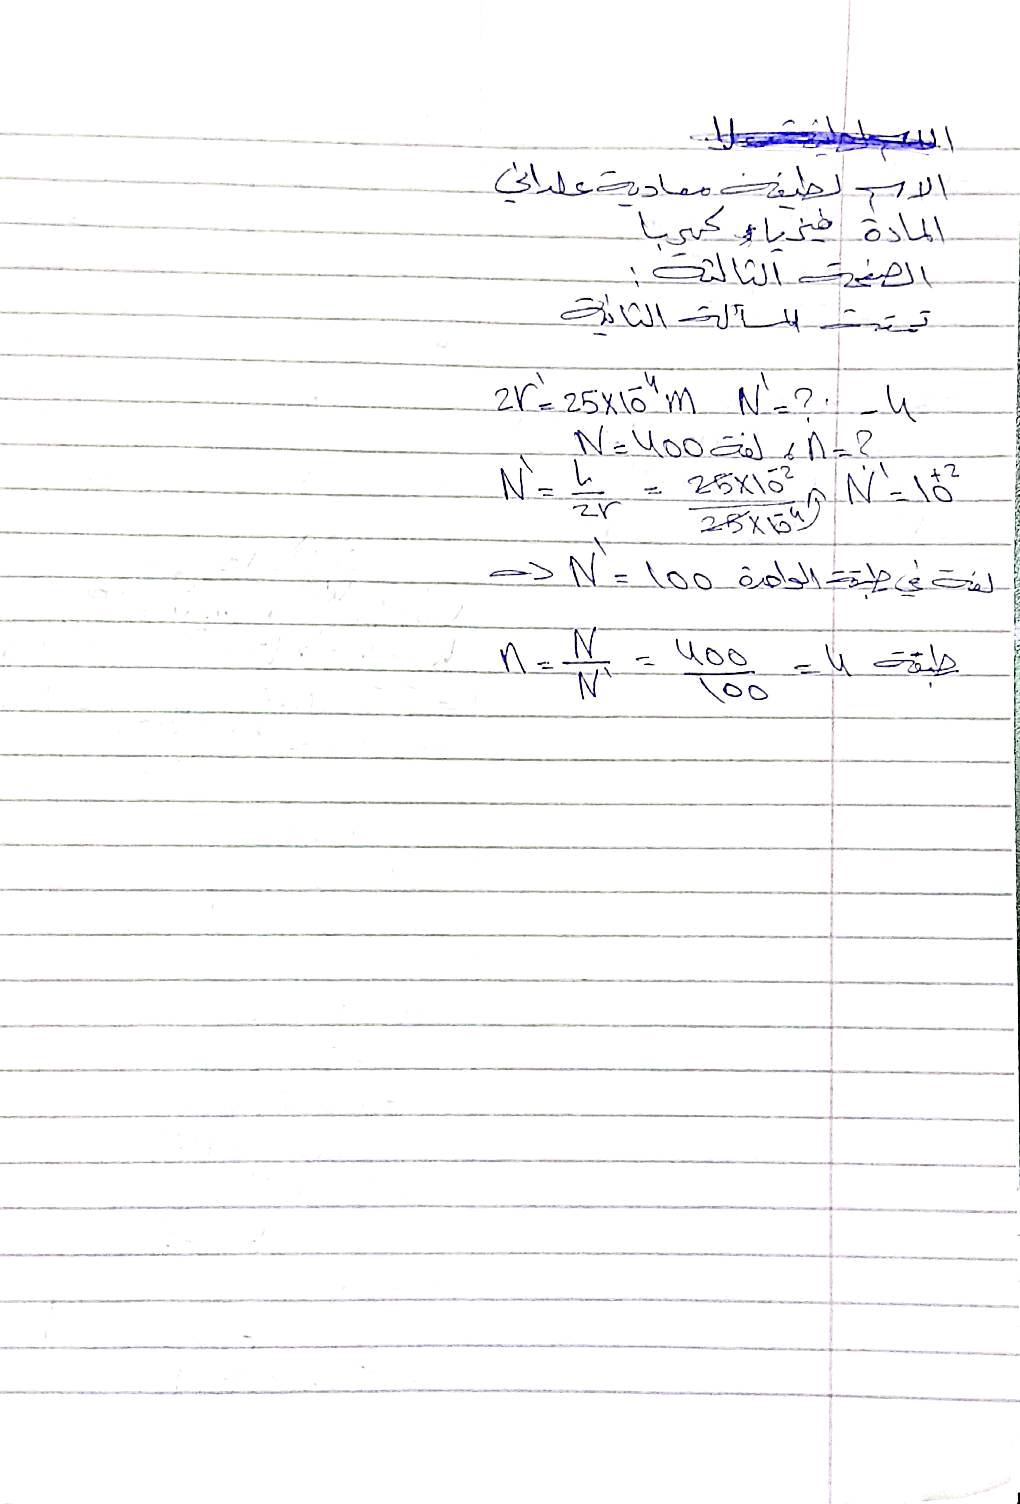 الاسم لطيفة معادية علداني
المادة فيزياء كهربا
الصفحة الثالثة :
تتمت المسألة الثانية
4 - N' = ? . 2r' = 25×10⁻⁴ m
N = 400 لفة ، n = ?
N' = L/2r' = 25×10⁻² / 25×10⁻⁴ , N' = 10⁺²
=> N' = 100 لفة في طبقة الواحدة
n = N/N' = 400/100 = 4 طبقة